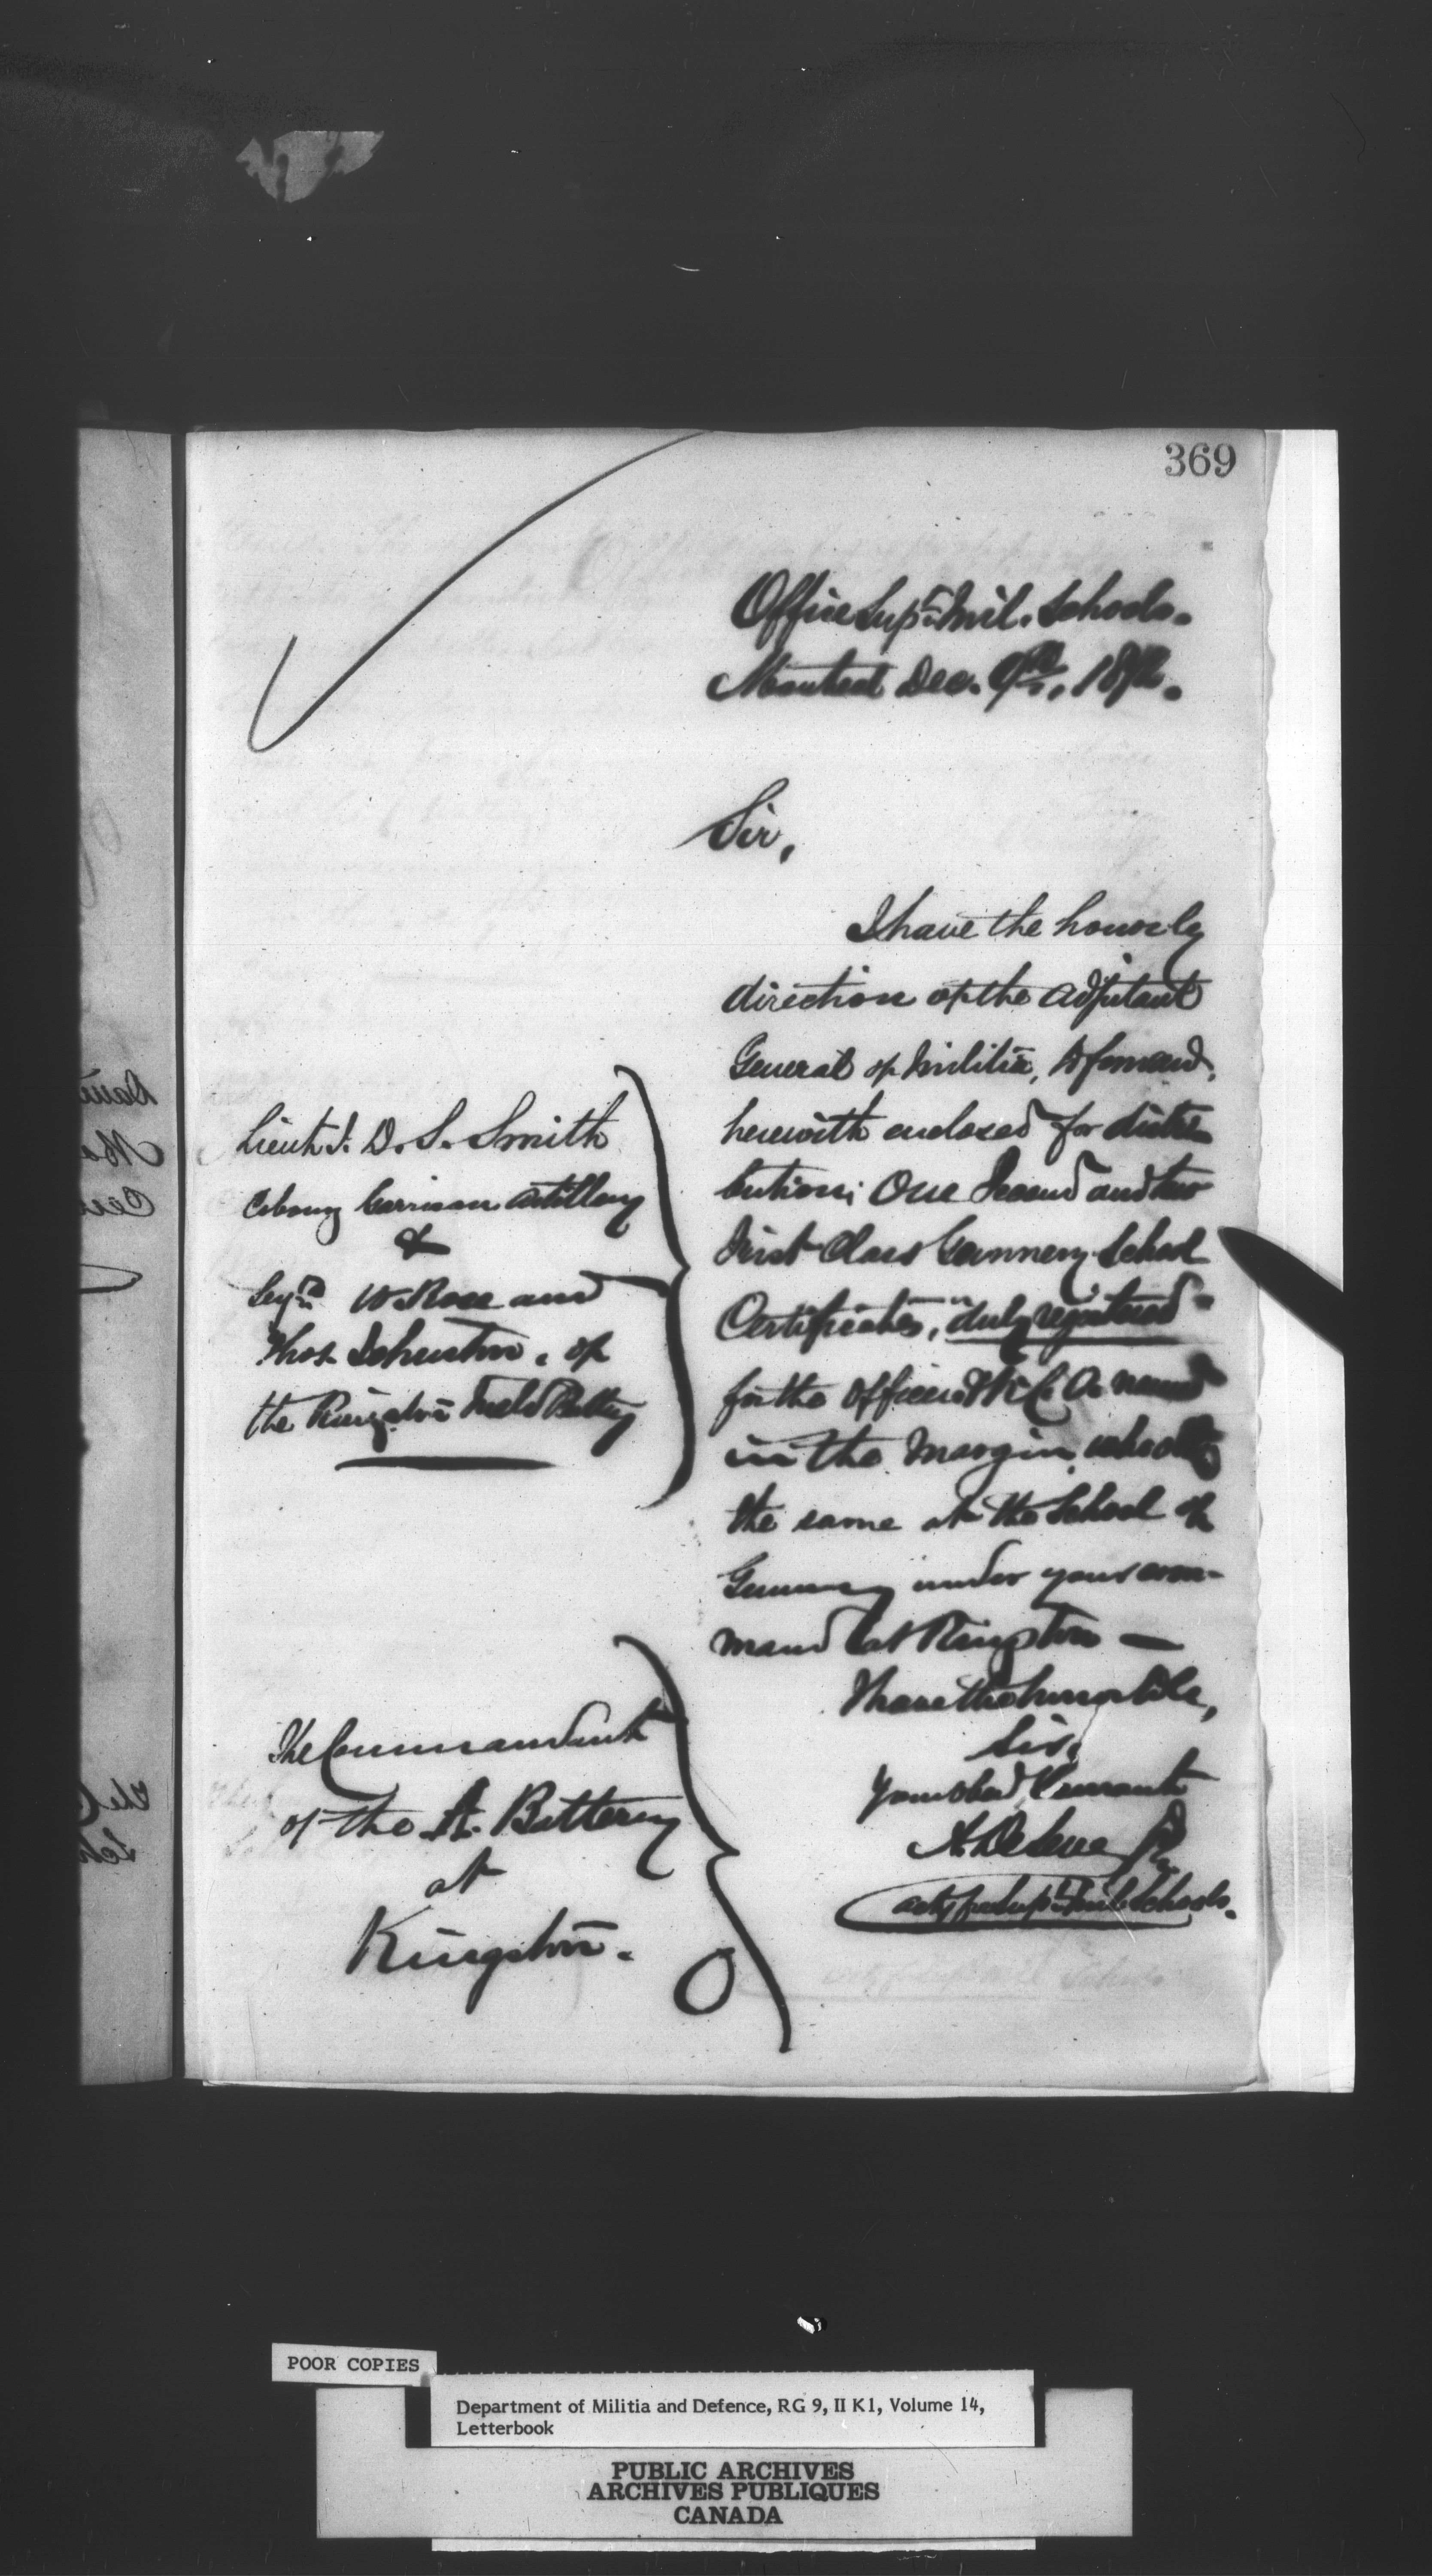 369
Office Supt. Mil. Schools.
Montreal Dec. 9th, 187
Sir,
I have the honor by
direction of the Adjutant
General of Militia, to forward,
herewith enclosed for distri-
bution; One Second and two
First Class Gunnery School
Certificates, duly registered
for the Officer & N.C.O. named
in the Margin, who
the same at the School of
Gunnery under your com-
mand at Kingston —
I have the honor to be,
Sir,
Your obed. Servant
A. 
actg for Supt. Mil. Schools.
Lieut. J. D. S. Smith
Cobourg Garrison Artillery
&
W. Rose and
Thos. Johnston, of
the Kingston Field Battery
The Commandant
of the A. Battery
at
Kingston.
POOR COPIES
Department of Militia and Defence, RG 9, II K1, Volume 14,
Letterbook
PUBLIC ARCHIVES
ARCHIVES PUBLIQUES
CANADA